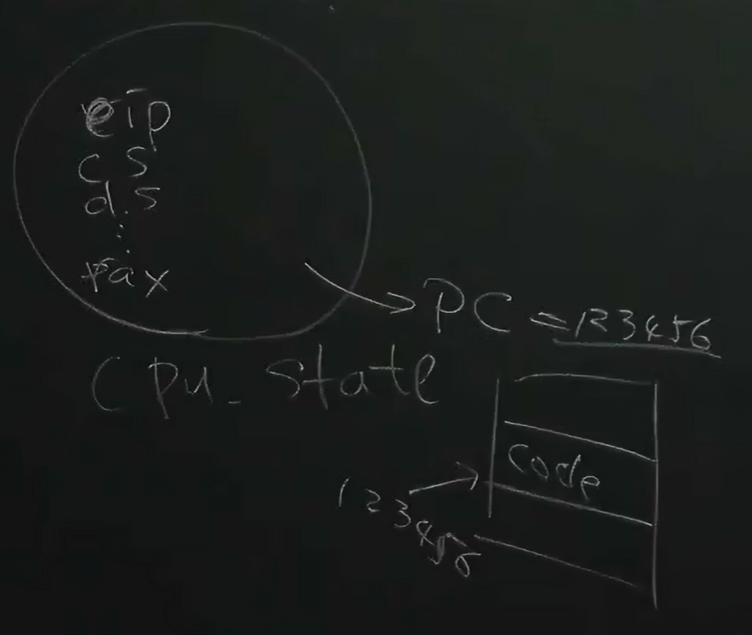 eip
cs
d.s
⋮
rax
PC = 123456
CPU_State
code
123456